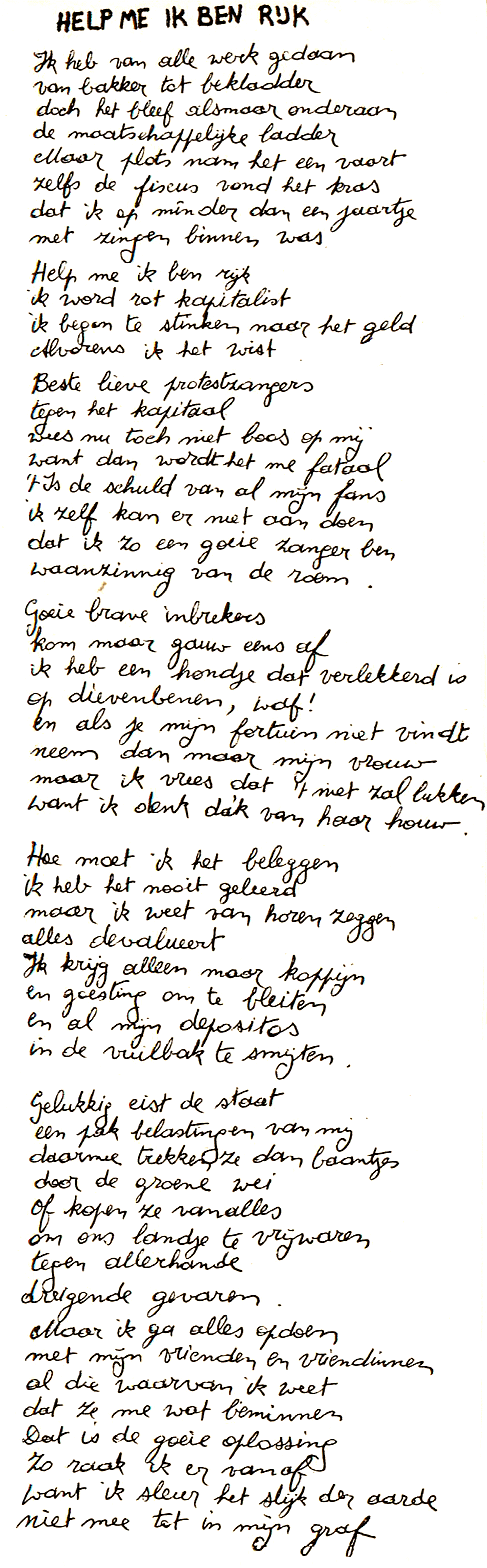 HELP ME IK BEN RIJK
Ik heb van alle werk gedaan
van bakker tot bekladder
doch het bleef alsmaar onderaan
de maatschappelijke ladder
Maar plots nam het een vaart
zelfs de fiscus vond het kras
dat ik op minder dan een jaartje
met zingen binnen was
Help me ik ben rijk
ik word rot kapitalist
ik begon te stinken naar het geld
Alvorens ik het wist
Beste lieve protestzangers
tegen het kapitaal
wees nu toch niet boos op mij
want dan wordt het me fataal
't Is de schuld van al mijn fans
ik zelf kan er niet aan doen
dat ik zo een goeie zanger ben
waanzinnig van de room.
Goeie brave inbrekers
kom maar gauw eens af
ik heb een hondje dat verlekkerd is
op dievenbenen, waf!
en als je mijn fortuin niet vindt
neem dan maar mijn vrouw
maar ik vrees dat 't niet zal lukken
want ik denk da'k van haar houw.
Hoe moet ik het beleggen
ik heb het nooit geleerd
maar ik weet van horen zeggen
alles devalueert
Ik krijg alleen maar koppijn
en goesting om te bleiten
en al mijn depositos
in de vuilbak te smijten.
Gelukkig eist de staat
een pak belastingen van mij
daarmee trekken ze dan baantjes
door de groene wei
Of kopen ze vanalles
om ons landje te vrijwaren
tegen allerhande
dreigende gevaren.
Maar ik ga alles opdoen
met mijn vrienden en vriendinnen
al die waarvan ik weet
dat ze me wat beminnen
Dat is de goeie oplossing
Zo raak ik er vanaf
want ik sleur het slijk der aarde
niet mee tot in mijn graf